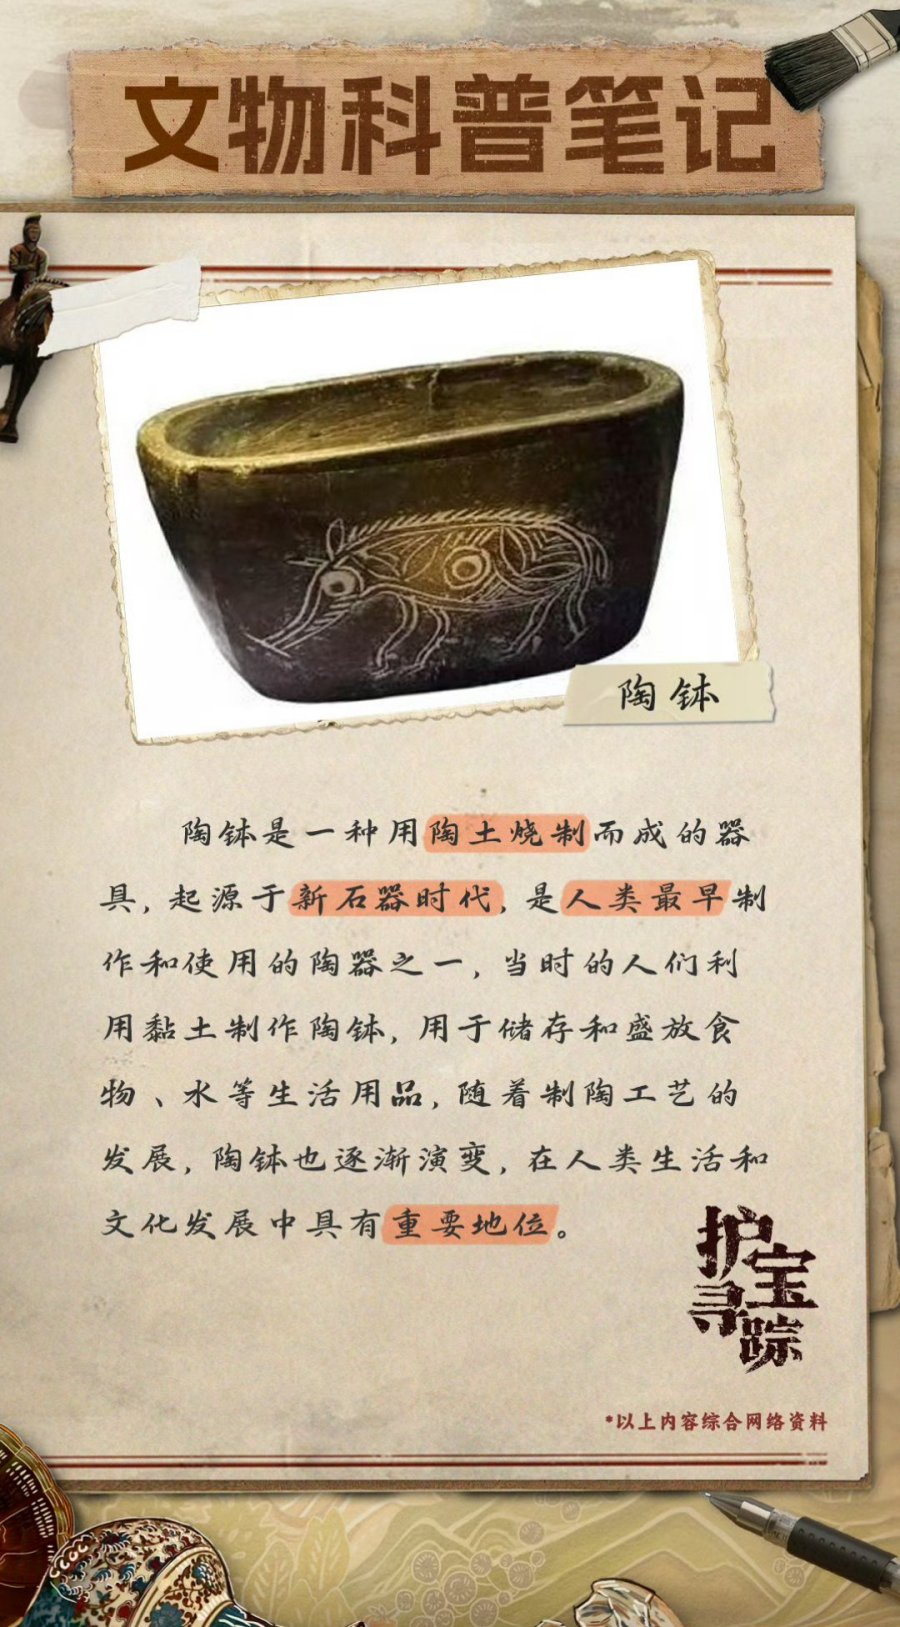 文物科普笔记
陶钵
陶钵是一种用陶土烧制而成的器
具，起源于新石器时代，是人类最早制
作和使用的陶器之一，当时的人们利
用黏土制作陶钵，用于储存和盛放食
物、水等生活用品，随着制陶工艺的
发展，陶钵也逐渐演变，在人类生活和
文化发展中具有重要地位。
护宝
寻踪
*以上内容综合网络资料